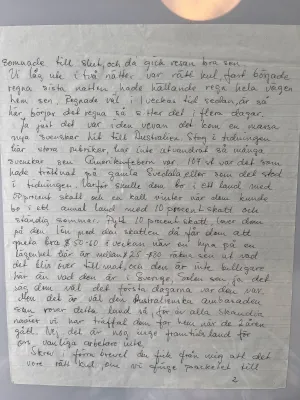 somnade till slut, och då gick resan bra sen.
Vi låg ute i två nätter, var rätt kul, fast började
regna sista natten, hade hällande regn hela vägen
hem sen. Regnade väl i veckas tid sedan, är så
här, börjar det regna så sitter det i flera dagar.
Ja just det var i den vevan det kom en massa
nya svenskar hit till Australien. Stog i tidningen
här stora rubriker, har inte utvandrat så många
svenskar sen Amerikafebern var 101 st var det som
hade tröttnat på gamla Svedala eller som det stod
i tidningen. Varför skulle dom bo i ett land med
50 procent skatt och en kall vinter när dom kunde
bo i ett annat land med 10 procent skatt och
ständig sommar. Pytt 10 procent skatt, inser dom
på den lön med den skatten då får dom att
var $50-60 i veckan när en hyra på en
lägenhet här är mellan 25 $30 räkna sen ut vad
det blir över till mat, och den är inte billigare
här än vad den är i Sverige. Solen sen ja det
såg dom väl det första dagarna var den var.
Men det är väl den Australienska ambasaden
som rosar detta land så för än alla skandina
vier vi har träffat dom far hem när de 2 åren
gått. Nej det är nog inge framtidsland för
oss vanliga arbetare inte.
Skrev i förra brevet du fick från mig att det
vore rätt kul om vi finge paketet till
2